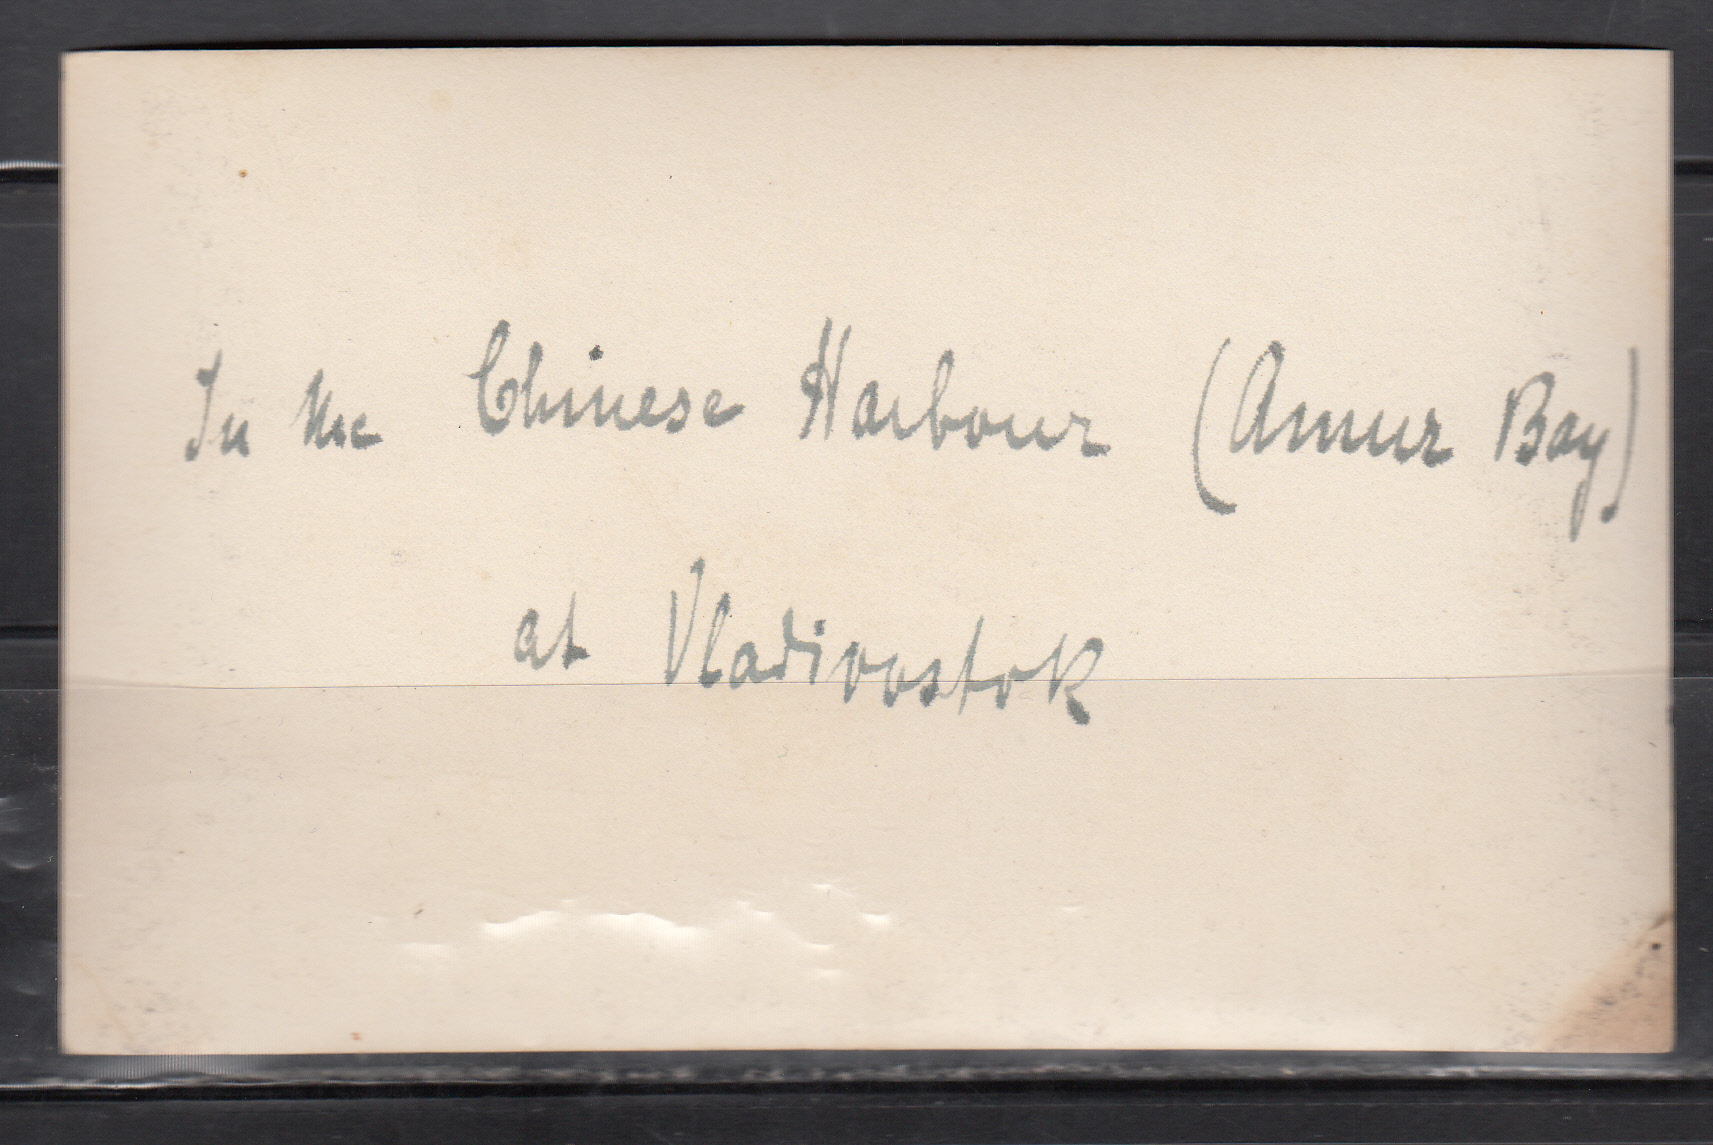 In the Chinese Harbour (Amur Bay)
at Vladivostok